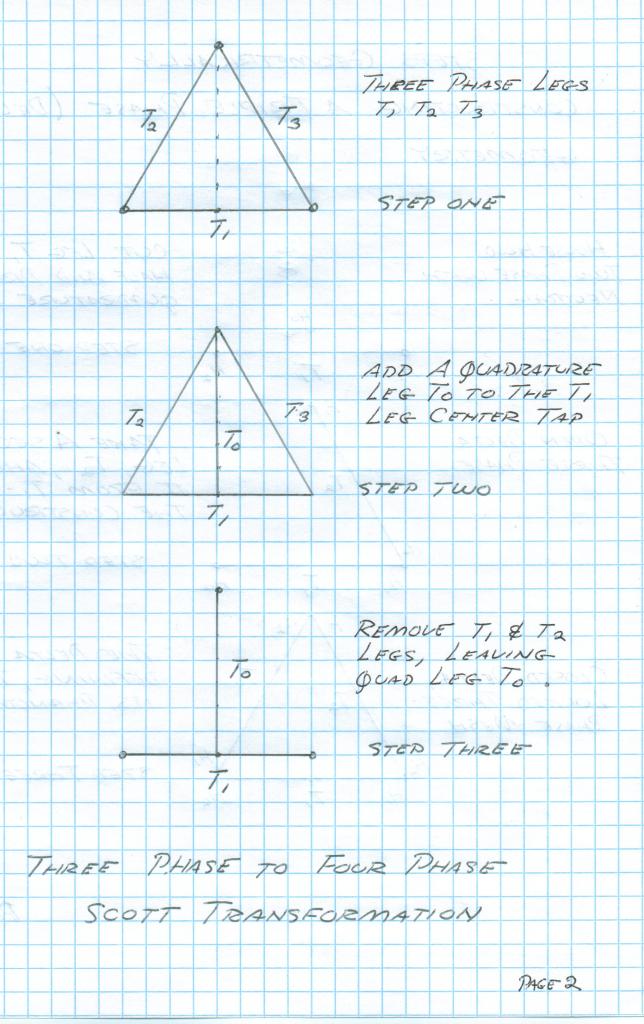 THREE PHASE LEGS
T1 T2 T3
T2
T3
T1
STEP ONE
ADD A QUADRATURE
LEG T0 TO THE T1
LEG CENTER TAP
T2
T3
T0
T1
STEP TWO
REMOVE T1 & T2
LEGS, LEAVING
QUAD LEG T0.
T0
T1
STEP THREE
THREE PHASE TO FOUR PHASE
SCOTT TRANSFORMATION
PAGE 2